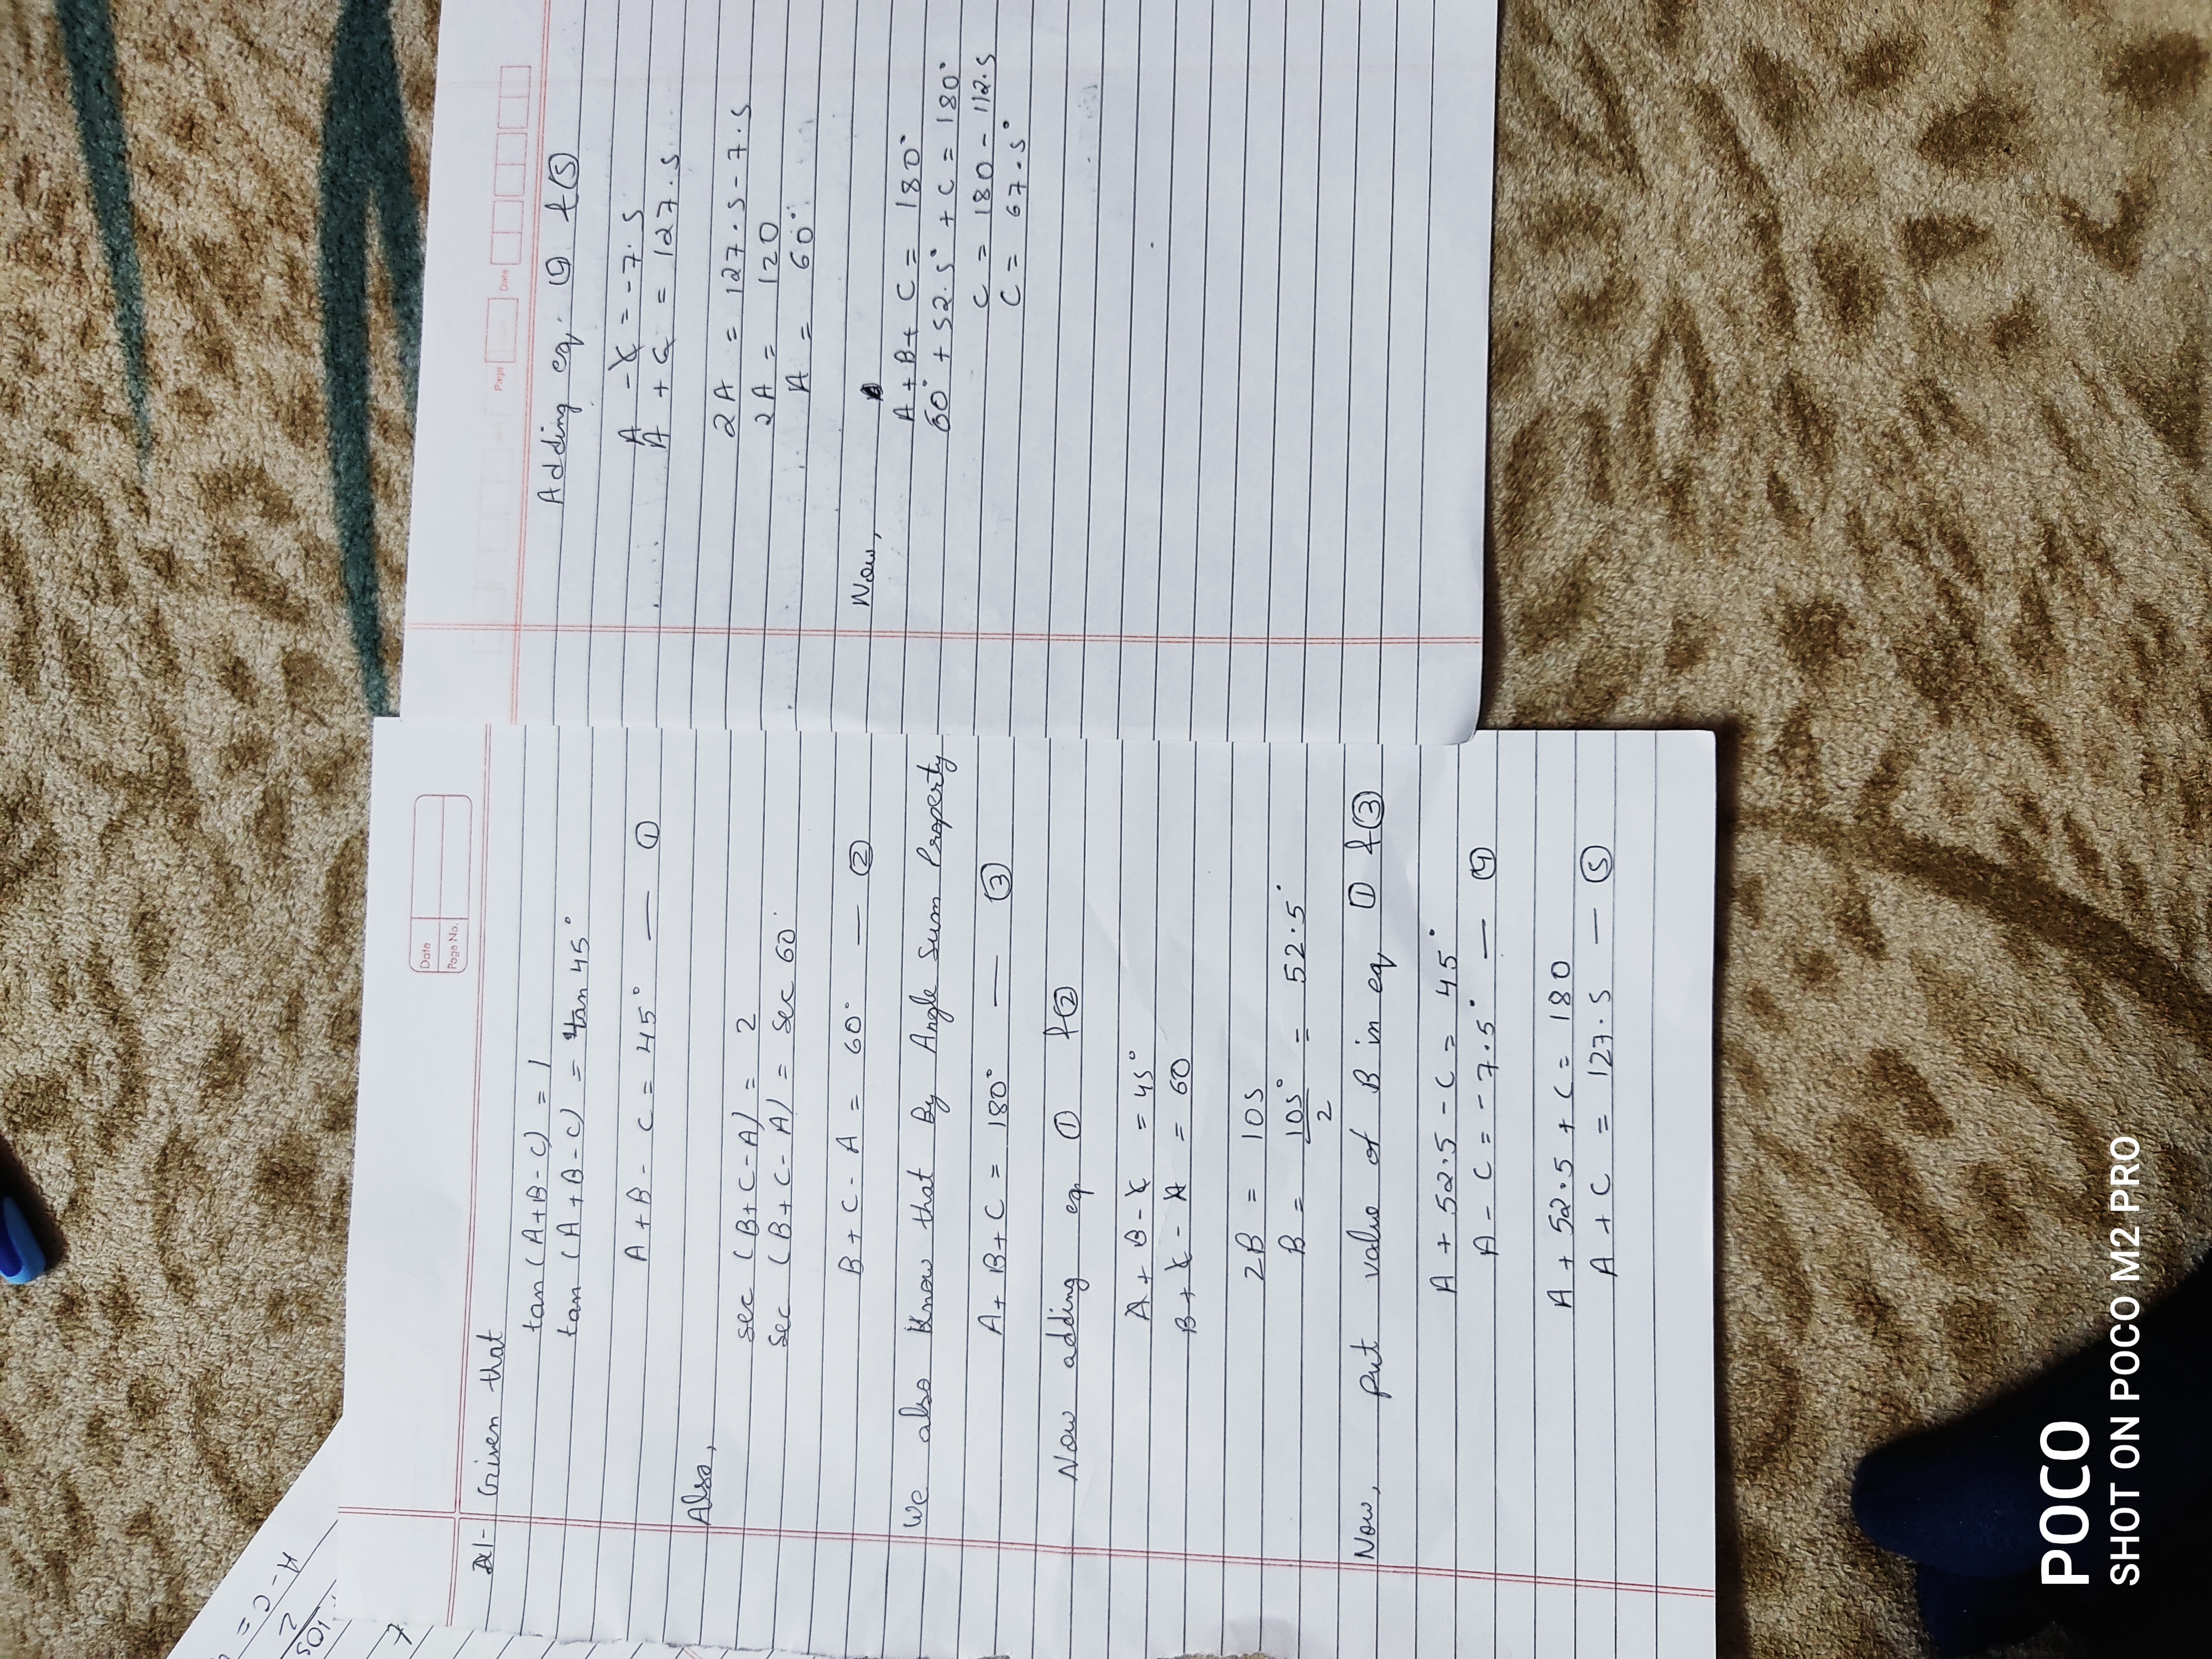 Date
Page No.
A1- Given that
tan (A+B-C) = 1
tan (A+B-C) = tan 45°
A+B-C = 45° — ①
Also,
sec (B+C-A) = 2
sec (B+C-A) = sec 60°
B+C-A = 60° — ②
We also Know that By Angle Sum Property
A+B+C = 180° — ③
Now adding eq. ① & ②
A+B-C = 45°
B+C-A = 60
2B = 105
B = 105°/2 = 52.5°
Now, put value of B in eq. ① & ③
A + 52.5 - C = 45°
A - C = -7.5° — ④
A + 52.5 + C = 180
A + C = 127.5 — ⑤
Page Date
Adding eq. ④ & ⑤
A - C = -7.5
A + C = 127.5
2A = 127.5 - 7.5
2A = 120
A = 60°
Now,
A+B+C = 180°
60° + 52.5° + C = 180°
C = 180 - 112.5
C = 67.5°
A-C=
2
105
7
POCO
SHOT ON POCO M2 PRO